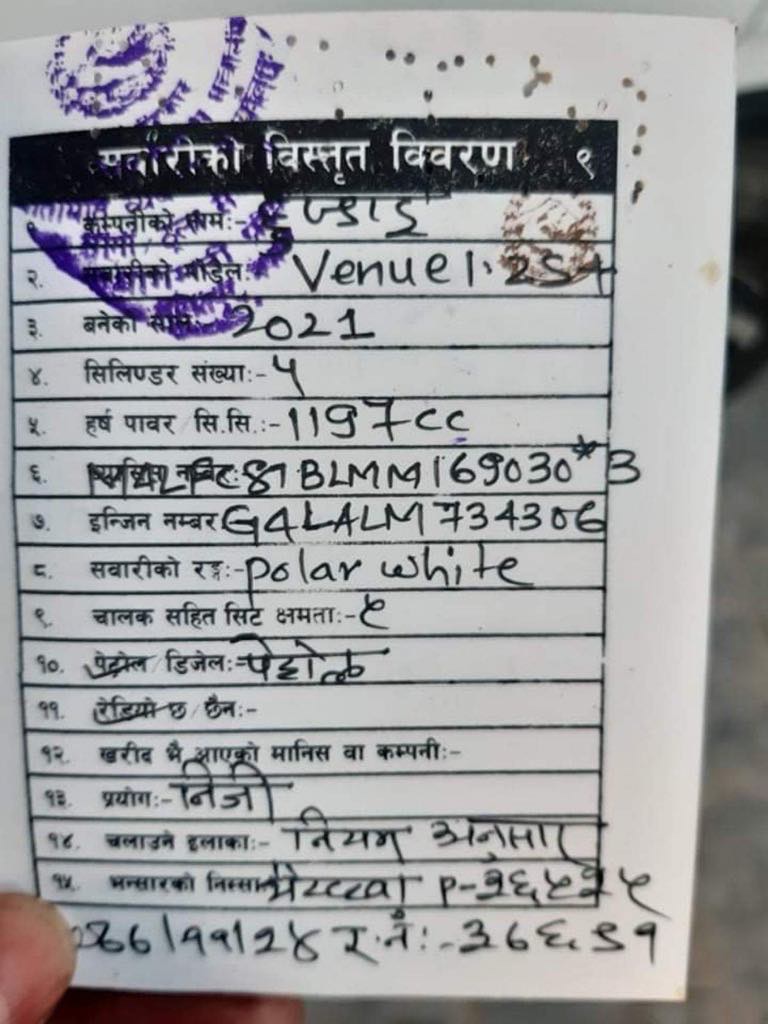 सवारीको विस्तृत विवरण १
१. कम्पनीको नाम:-
२. सवारीको मोडेल:- Venue 1.2S+
३. बनेको साल:- 2021
४. सिलिण्डर संख्या:- ५
५. हर्ष पावर सि.सि.:- 1197cc
६. BLMM169030*3
७. इन्जिन नम्बर G4LALM734306
८. सवारीको रङ्ग:- polar white
९. चालक सहित सिट क्षमता:- ५
१०. पेट्रोल/डिजेल:- पेट्रोल
११. रेडियो छ/छैन:-
१२. खरीद भै आएको मानिस वा कम्पनी:-
१३. प्रयोग:- निजी
१४. चलाउने इलाका:- नियम अनुसार
१५. भन्सारको निस्सा
र.नं:-